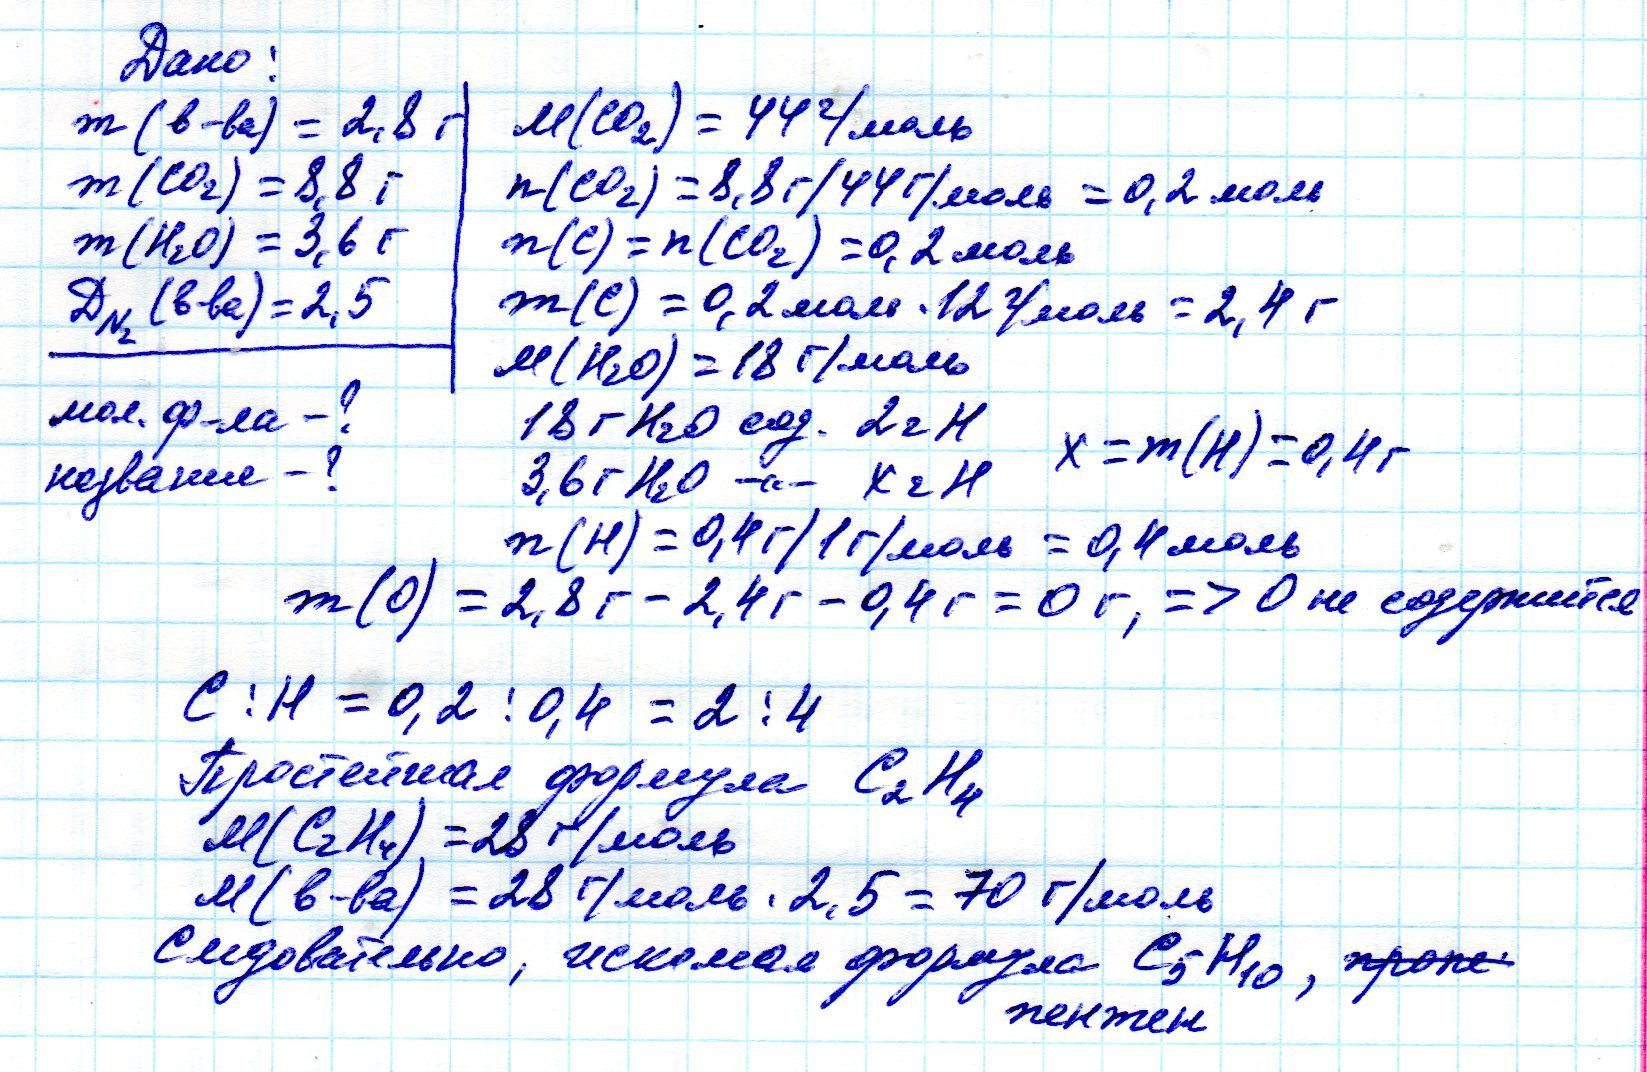 Дано:
m(в-ва) = 2,8 г
m(CO₂) = 8,8 г
m(H₂O) = 3,6 г
D_N₂(в-ва) = 2,5
мол. ф-ла - ?
название - ?
M(CO₂) = 44 г/моль
n(CO₂) = 8,8 г/44 г/моль = 0,2 моль
n(C) = n(CO₂) = 0,2 моль
m(C) = 0,2 моль · 12 г/моль = 2,4 г
M(H₂O) = 18 г/моль
18 г H₂O сод. 2 г H
3,6 г H₂O -"- x г H
x = m(H) = 0,4 г
n(H) = 0,4 г/1 г/моль = 0,4 моль
m(O) = 2,8 г - 2,4 г - 0,4 г = 0 г, => O не содержится
C : H = 0,2 : 0,4 = 2 : 4
Простейшая формула C₂H₄
M(C₂H₄) = 28 г/моль
M(в-ва) = 28 г/моль · 2,5 = 70 г/моль
Следовательно, искомая формула C₅H₁₀,
пентен